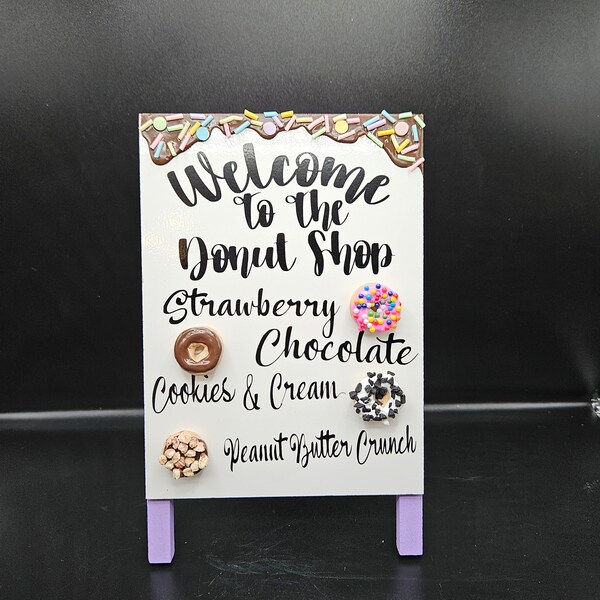 Welcome
to the
Donut Shop
Strawberry
Chocolate
Cookies & Cream
Peanut Butter Crunch